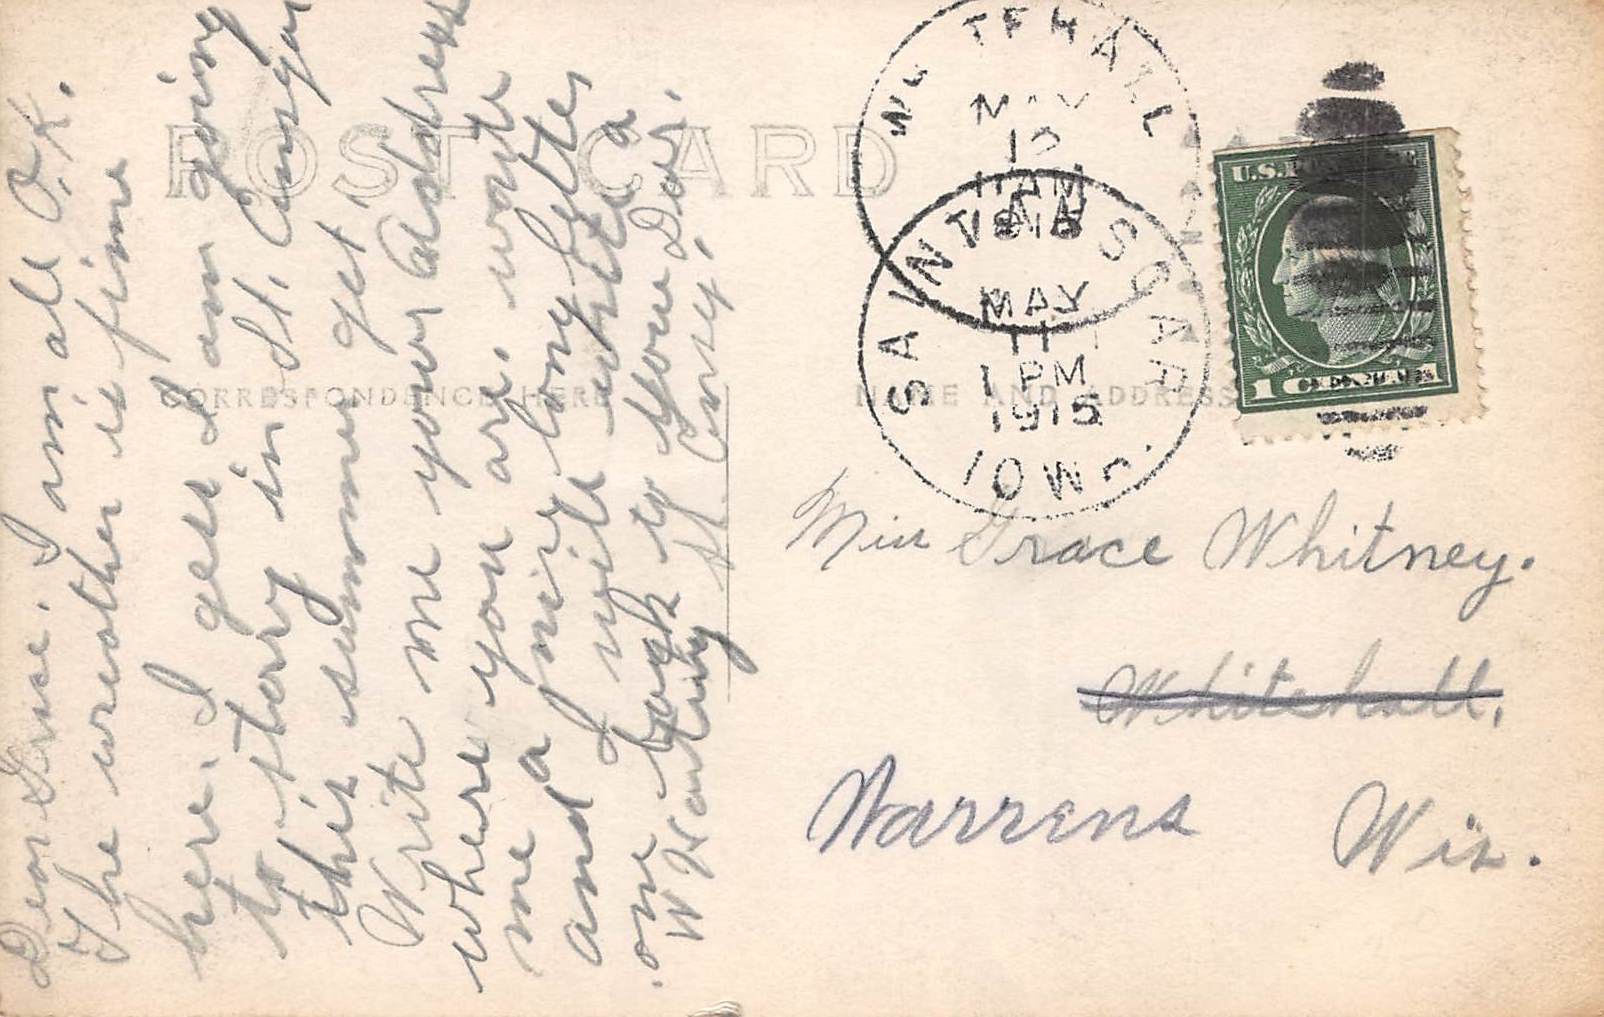 POST CARD
CORRESPONDENCE HERE
NAME AND ADDRESS
Dear Grace. I am all O.K.
The wreather is fine
here. I gess I am going
to stay in St. Ansgar
this summer yet.
Write me your Address
where you are. write
me a nice long letter
and I will write a
one back to you Dear.
W Hartwig St. Ansg,
TEHALL
MAY
12
11 AM
1915
SAINT ANSGAR
MAY
11
1 PM
1915
IOWA.
U.S. POSTAGE
1 CENT
Miss Grace Whitney.
Whitehall.
Warrens Wis.